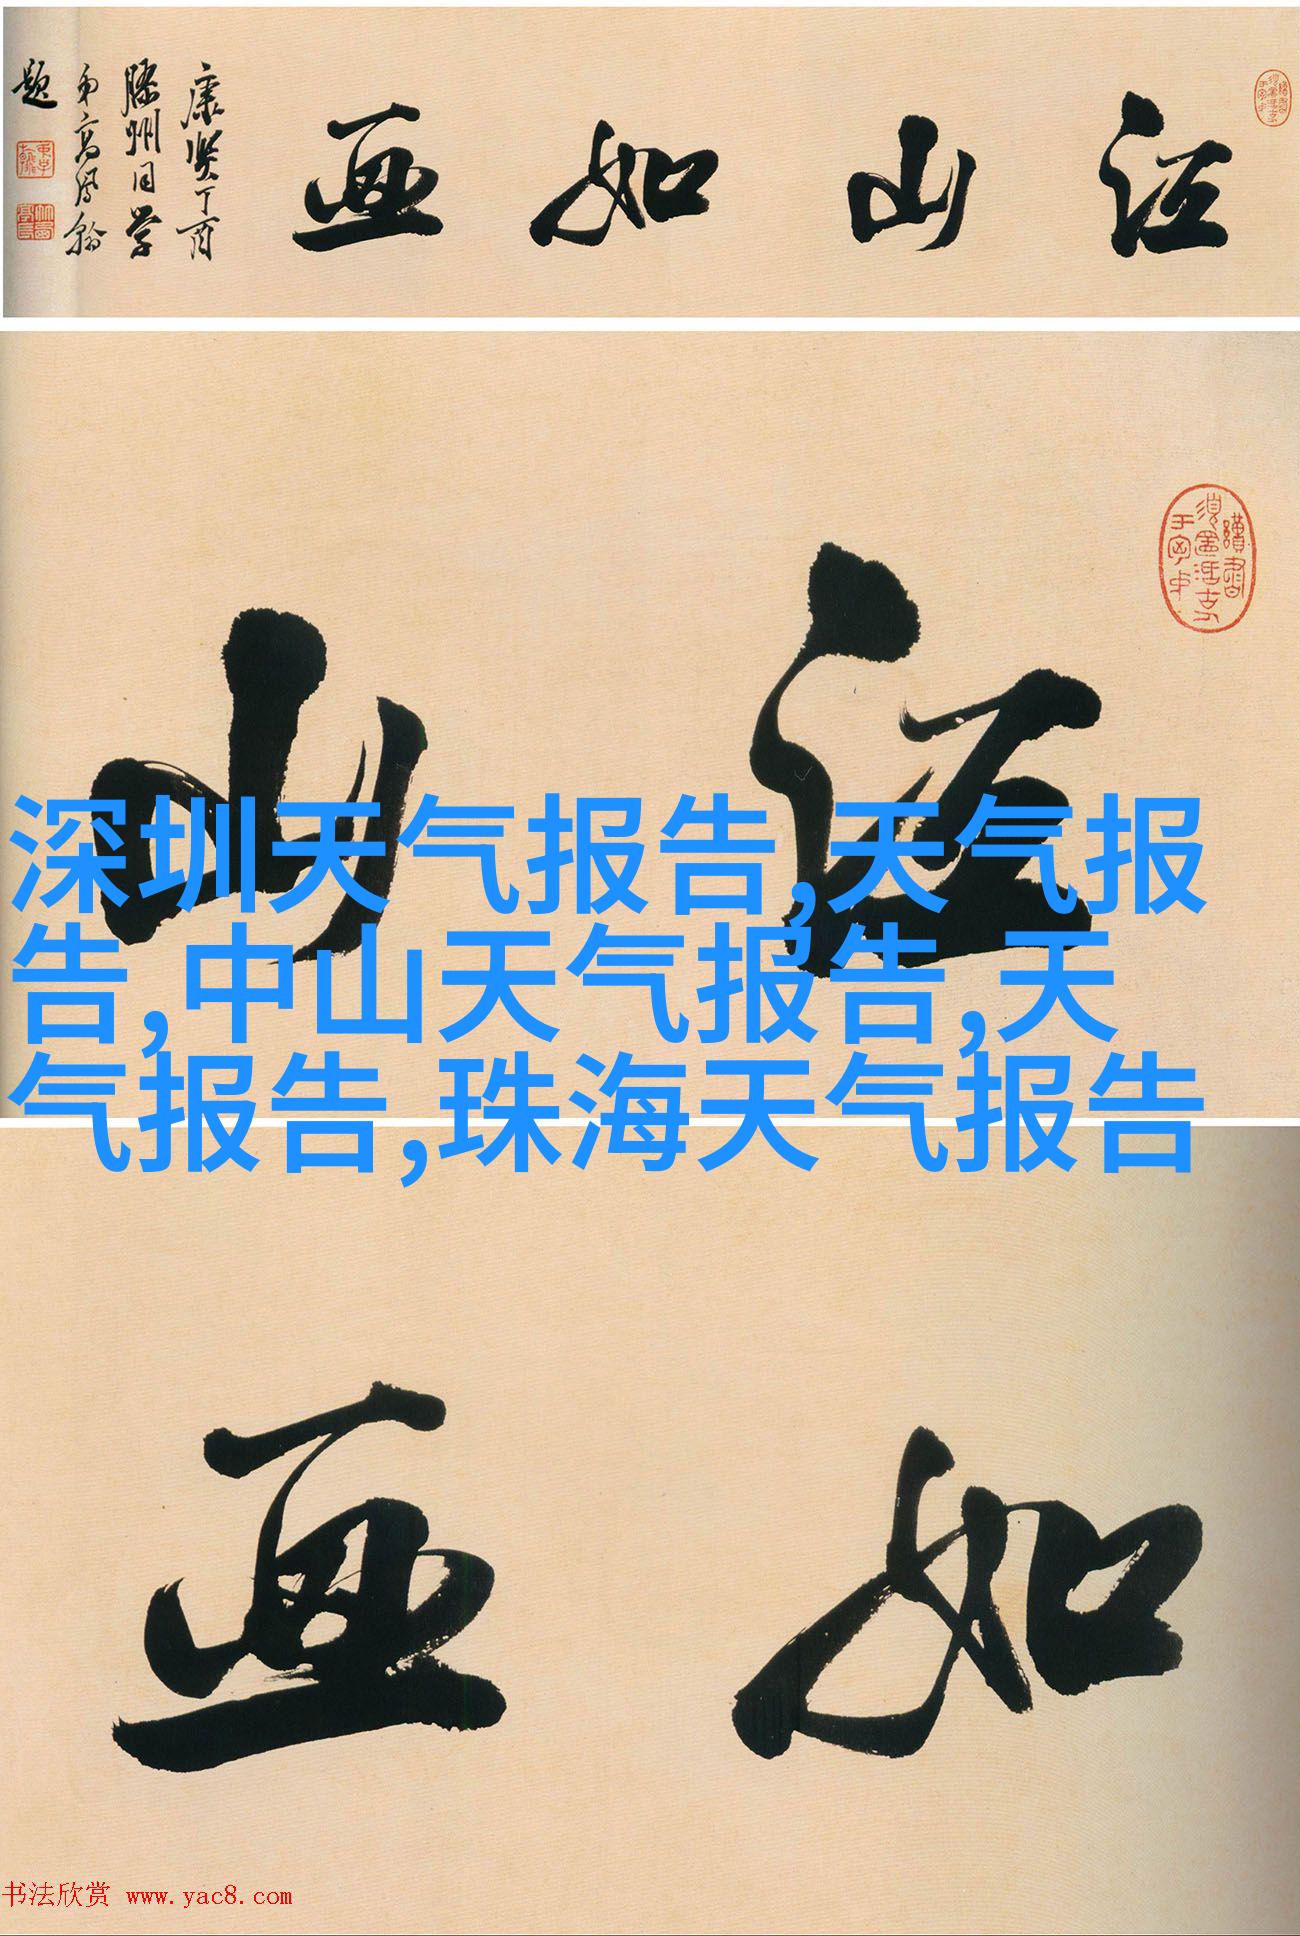 江山如画
康熙丁酉
膠州同学
弟高鳳翰
題
江山
深圳天气报告,天气报
告,中山天气报告,天
气报告,珠海天气报告
如画
书法欣赏 www.yac8.com